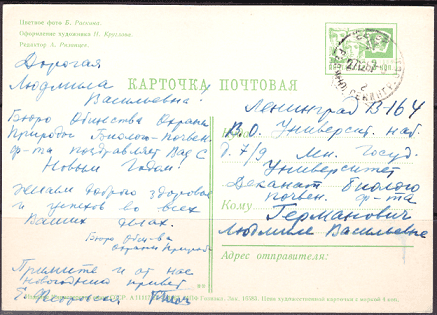 Цветное фото Б. Раскина.
Оформление художника П. Круглова.
Редактор А. Розанцев.
КАРТОЧКА ПОЧТОВАЯ
Дорогая
Людмила
Васильевна!
Бюро Общества Охраны
Природы Биолого-почвен.
ф-та поздравляет Вас с
Новым Годом!
Желаем доброго здоровья
и успехов во всех
Ваших делах.
Бюро Общ-ва
охраны природы
Примите и от нас
новогодний привет
Куда
Ленинград В-164
В.О. Университ. наб.
д. 7/9 Лен. Госуд.
Университет
Деканат Биолого
почвен. ф-та
Кому
Германович
Людмиле Васильевне
Адрес отправителя:
Зак. 10383. Цена художественной карточки с маркой 4 коп.